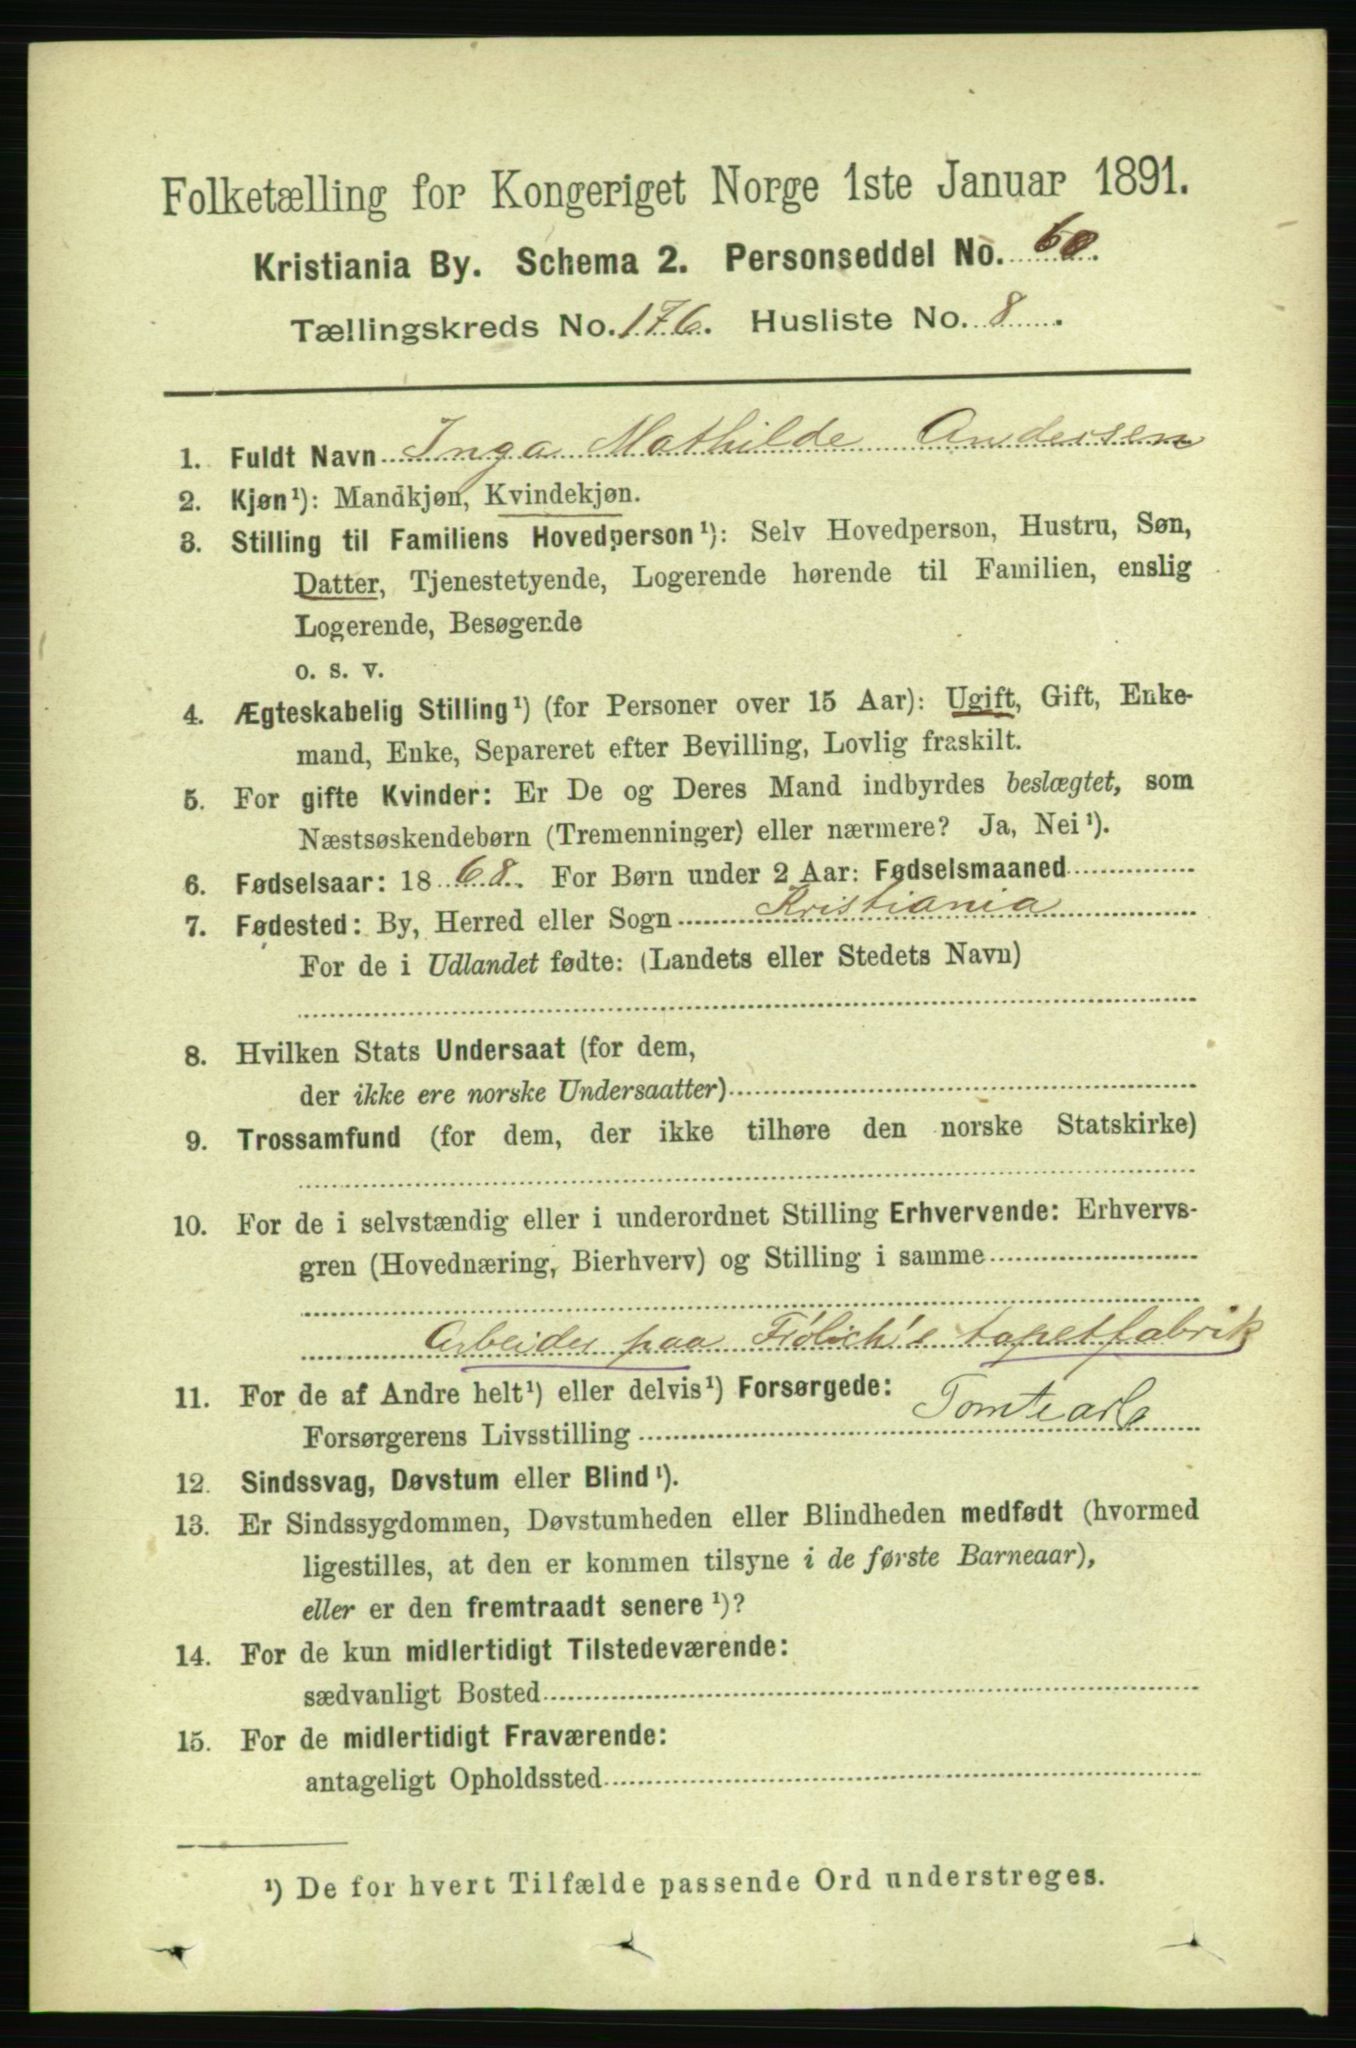 Folketælling for Kongeriget Norge 1ste Januar 1891.
Kristiania By. Schema 2. Personseddel No. 60.
Tællingskreds No. 176. Husliste No. 8.
1. Fuldt Navn Inga Mathilde Andersen
2. Kjøn¹): Mandkjøn, Kvindekjøn.
3. Stilling til Familiens Hovedperson¹): Selv Hovedperson, Hustru, Søn,
Datter, Tjenestetyende, Logerende hørende til Familien, enslig
Logerende, Besøgende
o. s. v.
4. Ægteskabelig Stilling¹) (for Personer over 15 Aar): Ugift, Gift, Enke-
mand, Enke, Separeret efter Bevilling, Lovlig fraskilt.
5. For gifte Kvinder: Er De og Deres Mand indbyrdes beslægtet, som
Næstsøskendebørn (Tremenninger) eller nærmere? Ja, Nei¹).
6. Fødselsaar: 1868. For Børn under 2 Aar: Fødselsmaaned
7. Fødested: By, Herred eller Sogn Kristiania
For de i Udlandet fødte: (Landets eller Stedets Navn)
8. Hvilken Stats Undersaat (for dem,
der ikke ere norske Undersaatter)
9. Trossamfund (for dem, der ikke tilhøre den norske Statskirke)
10. For de i selvstændig eller i underordnet Stilling Erhvervende: Erhvervs-
gren (Hovednæring, Bierhverv) og Stilling i samme
Arbeider paa Frölich's tapetfabrik
11. For de af Andre helt¹) eller delvis¹) Forsørgede:
Forsørgerens Livsstilling Tomtearb
12. Sindssvag, Døvstum eller Blind¹).
13. Er Sindssygdommen, Døvstumheden eller Blindheden medfødt (hvormed
ligestilles, at den er kommen tilsyne i de første Barneaar),
eller er den fremtraadt senere¹)?
14. For de kun midlertidigt Tilstedeværende:
sædvanligt Bosted
15. For de midlertidigt Fraværende:
antageligt Opholdssted
¹) De for hvert Tilfælde passende Ord understreges.